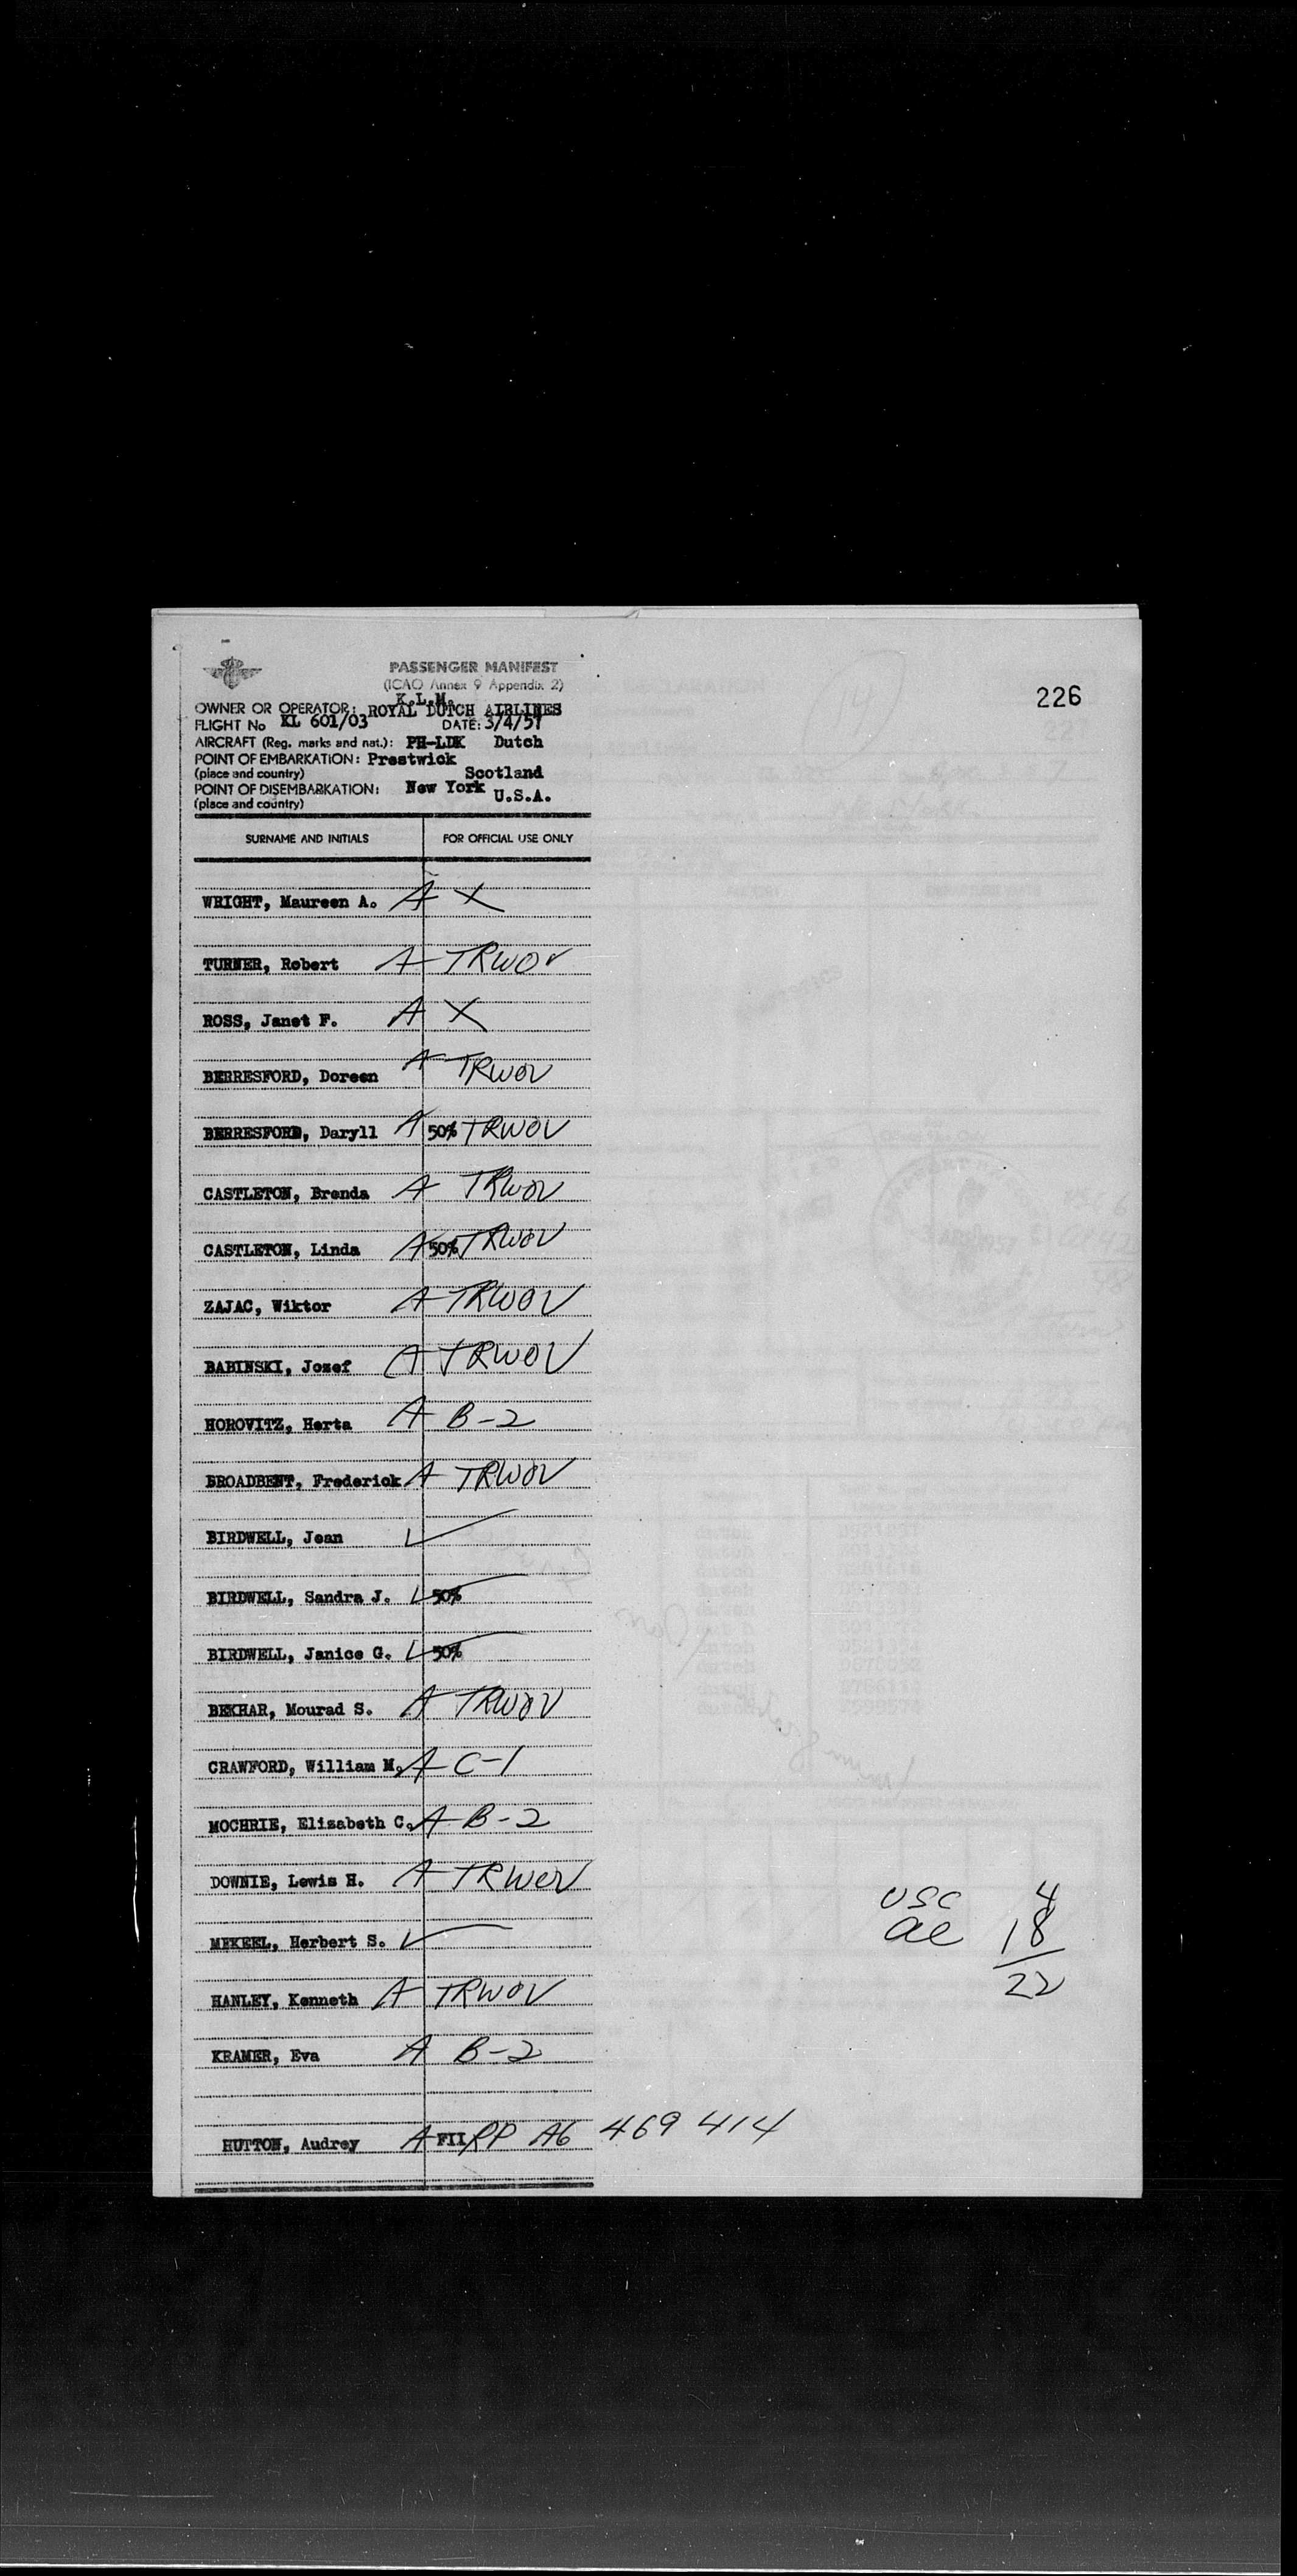 PASSENGER MANIFEST
(ICAO Annex 9 Appendix 2)
K.L.M.
OWNER OR OPERATOR: ROYAL DUTCH AIRLINES
226
FLIGHT No KL 601/03 DATE: 3/4/57
AIRCRAFT (Reg. marks and nat.): PH-LDK Dutch
POINT OF EMBARKATION: Prestwick
(place and country) Scotland
POINT OF DISEMBARKATION: New York U.S.A.
(place and country)
SURNAME AND INITIALS FOR OFFICIAL USE ONLY
WRIGHT, Maureen A. A X
TURNER, Robert A TRWOV
ROSS, Janet F. A X
BERRESFORD, Doreen A TRWOV
BERRESFORD, Daryll A 50% TRWOV
CASTLETON, Brenda A TRWOV
CASTLETON, Linda A 50% TRWOV
ZAJAC, Wiktor A TRWOV
BABINSKI, Jozef A TRWOV
HOROVITZ, Herta A B-2
BROADBENT, Frederick A TRWOV
BIRDWELL, Jean
BIRDWELL, Sandra J. 50%
BIRDWELL, Janice G. 50%
BEKHAR, Mourad S. A TRWOV
CRAWFORD, William M. A C-1
MOCHRIE, Elizabeth C. A B-2
DOWNIE, Lewis H. A TRWOV
USC 4
MEKEEL, Herbert S.
al 18
22
HANLEY, Kenneth A TRWOV
KRAMER, Eva A B-2
HUTTON, Audrey A FII RP A6 469 414